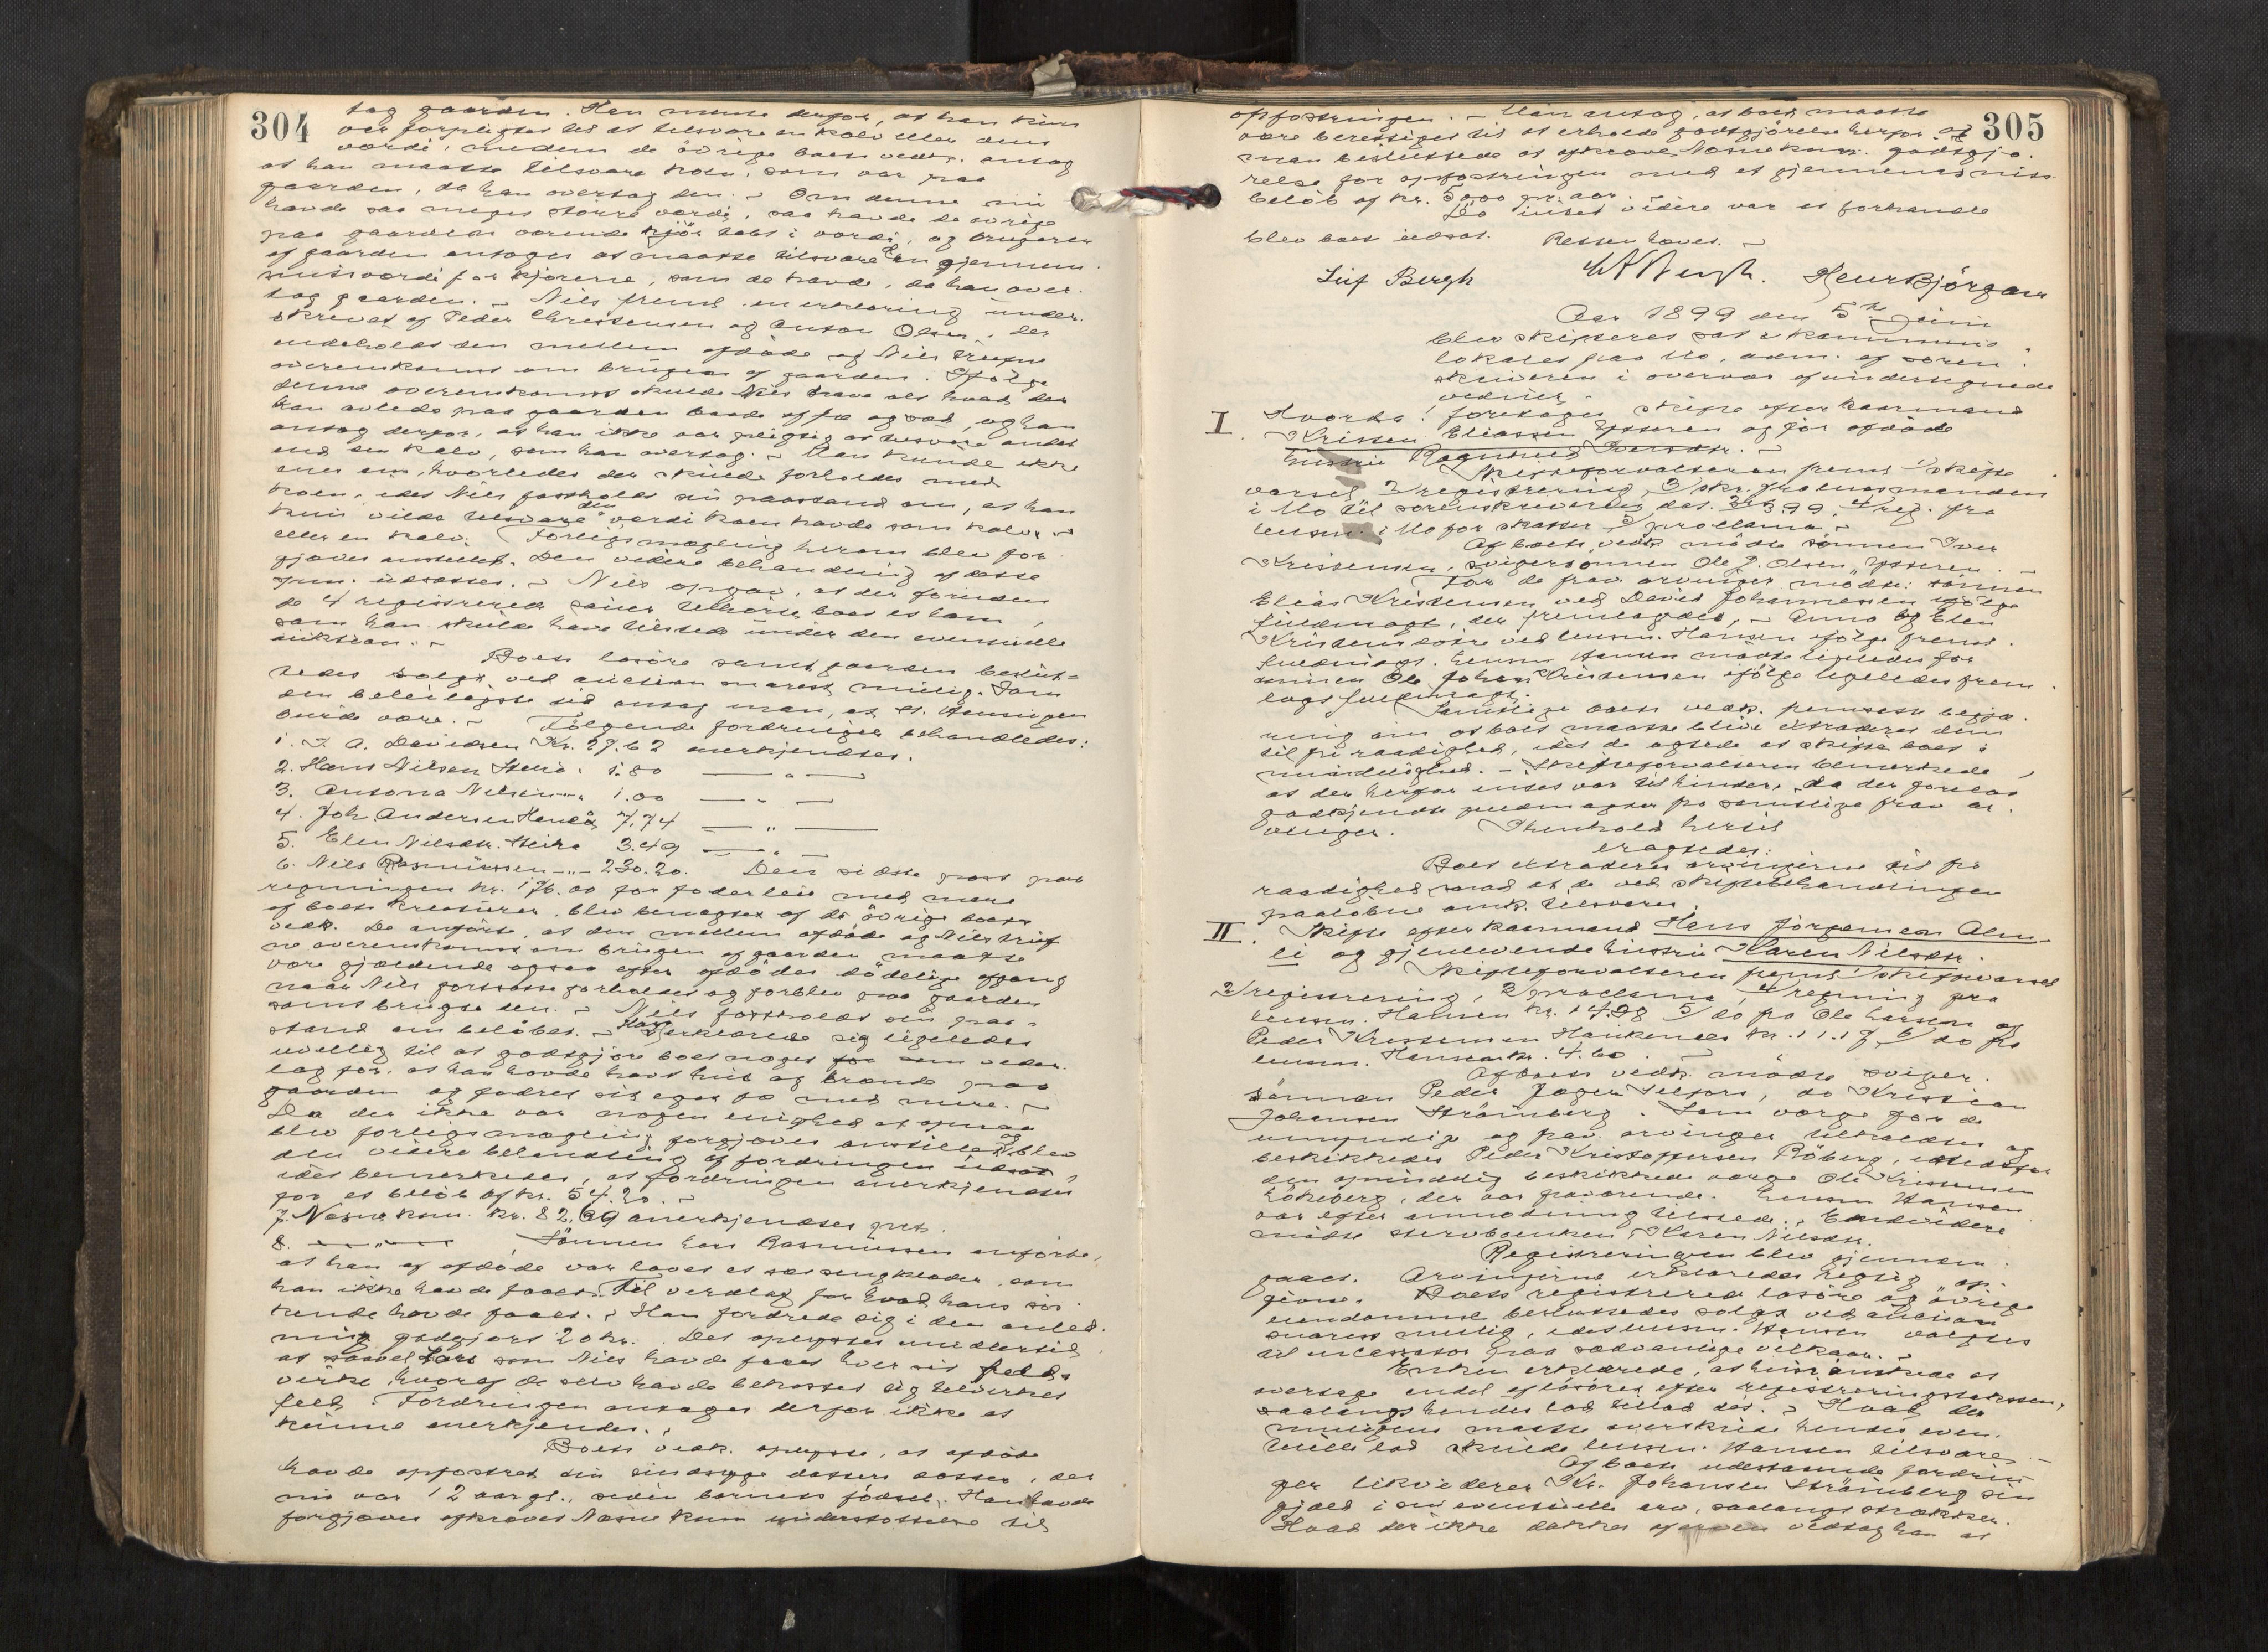 304
tog gaarden. Han mente derfor, at han kun
var forpligtet til at tilsvare en kalv eller dens
værdi, medens de övrige boets vedk. antog
at han maatte tilsvare koen, som var paa
gaarden, da han overtog den. - Om denne nu
havde saa meget större værdi, saa havde de övrige
paa gaarden værende kjör tabt i værdi, og brugeren
af gaarden antoges at maatte tilsvare den gjennem-
snitsværdi for kjörene, som de havde, da han over-
tog gaarden. - Niels freml. en erklæring under-
skrevet af Peder Christensen og Anton Olsen, der
indeholdt den mellem afdöde og Nils trufne
overenskomst om brugen af gaarden. Ifölge
denne overenskomst skulde Nils have alt hvad der
kan avledes paa gaarden baade af fæ og sæd, og han
antog derfor, at han ikke var pligtig at tilsvare andet
end den kalv, som han overtog. - Man kunde ikke
enes om, hvorledes der skulde forholdes med
koen, idet Nils fastholdt sin paastand om, at han
kun vilde tilsvare den værdi koen havde som kalv -
eller en kalv. Forligsmægling herom blev for-
gjæves anstillet. Den videre behandling af dette
spm. udsættes. - Nils opgav, at der foruden
de 4 registrerede sauer tilhörte boet et lam,
som han skulde have tilstede under den eventuelle
auktion. -
Boets lösöre samt gaarden beslut-
tedes solgt ved auction snarest mulig. Som
den beleiligste tid antog man, at St. Hanstiden
burde være. - Følgende fordringer behandledes:
1. I. A. Davidsen Kr. 27.62 anerkjendtes.
2. Hans Nilsen 1.80 — " —
3. Antona Nilsen 1.00 — " —
4. Joh. Andersen 7,74 — " —
5. Elen Nilsdtr. 3.49 — " —
6. Nils Rasmussen -"- 230.20. Den sidste post paa
regningen kr. 176.00 for foderleie med mere
af boets kreaturer blev benægtet af de övrige boets
vedk. De anförte, at den mellem afdöde og Nils truf-
ne overenskomst om brugen af gaarden maatte
være gjældende ogsaa efter afdödes dödelige afgang
naar Nils fortsatte forholdet og forblev paa gaarden
samt brugte den. - Nils fastholdt sin paa-
stand om belöbet. - Han erklærede sig ligeledes
uvillig til at godtgjöre boet noget for som veder-
lag for, at han havde havt hus og brænde paa
gaarden og fodret sit eget fæ med mere. -
Da der ikke var nogen enighed at opnaa
blev forligsmægling forgjæves anstillet og blev
den videre behandling af fordringen udsat,
idet bemerkedes, at fordringen anerkjendtes
for et belöb af kr. 54.20. -
7. Nesna kom. kr. 82.69 anerkjendtes
8. — " — Sönnen Lars Rasmussen anförte,
at han af afdöde var lovet et sæt sengklæder, som
han ikke havde faaet. Til vederlag for hvad hans sös-
kende havde faaet. - Han fordrede sig i den anled-
ning godtgjort 20 kr. Det oplystes imidlertid
at saavel Lars som Nils havde faaet hver sit feld-
virke, hvoraf de selv havde bekostet sig tilvirket
feld. Fordringen antages derfor ikke at
kunne anerkjendes. -
Boets vedk. oplyste, at afdöde
havde opfostret sin sindssyge datters datter, der
nu var 12 aar gl., siden barnets födsel. Han havde
forgjæves afkrævet Nesna kom. understöttelse til
305
opfostringen. - Man antog, at boet maatte
være berettiget til at erholde godtgjörelse herfor og
man besluttede at afkræve Nesna kom. godtgjö-
relse for opfostringen med et gjennemsnits-
belöb af kr. 50,00 pr. aar.
Da intet videre var at forhandle
blev boet udsat. Retten hævet. -
Leif Bergh Henr Bjørgan
Aar 1899 den 5te Juni
blev skifteret sat i kommune-
lokalet paa Mo, adm. af soren-
skriveren i overvær af undertegnede
vidner.
I. Hvorda: foretoges skifte efter kaarmand
Kristen Eliassen Ytteren og för afdöde
hustru Ragnhild Iversdtr. -
Skifteforvalteren freml. 1/ skifte-
varsel 2/ registrering, 3/ skr. fra lensmanden
i Mo til sorenskriveren dat. 3.3.99. 4/ reg. fra
lensm. i Mo for skatter 5/ proclama. -
Af boets vedk. mödte sönnen Iver
Kristensen, svigersönnen Ole J. Olsen Ytteren. -
For de frav. arvinger mödte: sönnen
Elias Kristensen ved David Johannessen ifölge
fuldmagt, der fremlagdes, - Anna og Elen
Kristensdötre ved lensm. Hansen ifölge freml.
fuldmagt. Lensm. Hansen mödte ligeledes for
sönnen Ole Johan Kristensen ifölge ligeledes frem-
lagt fuldmagt.
Samtlige boets vedk. fremsatte begjæ-
ring om at boet maatte blive extraderet dem
til fri raadighed, idet de agtede at skifte boet i
mindelighed. - Skifteforvalteren bemerkede,
at der herfor intet var til hinder, da der forelaa
godkjendte fuldmagter fra samtlige frav. ar-
vinger. I henhold hertil
eragtedes:
Boet extraderes arvingerne til fri
raadighed, mod at de ved skiftebehandlingen
paalöbne omk. tilsvares.
II. Skifte efter kaarmand Hans Jörgensen Alm-
li og gjenlevende hustru Karen Nilsdtr.
Skifteforvalteren freml. 1/ skiftevarsel
2/ registrering, 3/ proclama, 4/ regning fra
lensm. Hansen kr. 14.98 5/ do fra Ole Larsen og
Peder Kristensen kr. 11.17, 6/ do fra
lensm. Hansen kr. 4.60. -
Af boets vedk. mödte sviger-
sönnen Peder Jager Selfors, do Kristian
Johansen Strömberg. Som værge for de
umyndige og frav. arvinger tilkaldtes og
beskikkedes Peder Kristoffersen Röberg, istedetfor
den oprindelig beskikkede værge Ole Kristensen
, der var fraværende. Lensm. Hansen
var efter anmodning tilstede. - Endvidere
mödte sterbboenken, Karen Nilsdtr.
Registreringen blev gjennem-
gaaet. Arvingerne erklæredes rigtig op-
givne. Boets registrerede lösöre og övrige
eiendomme besluttedes solgt ved auction
snarest mulig, idet lensm. Hansen valgtes
til incassator paa sædvanlige vilkaar. -
Enken erklærede, at hun önskede at
overtage endel af lösöret efter registreringstaksten,
saalangt hendes lod tillod det. - Hvad der
muligens maatte overskride hendes even-
tuelle lod skulde lensm. Hansen tilsvare. -
Af boets udestaaende fordrin-
ger likviderer Kr. Johansen Strömberg sin
gjæld i sin eventuelle arv, saalangt strækker.
Hvad der ikke dækkes af arven vedtog han at